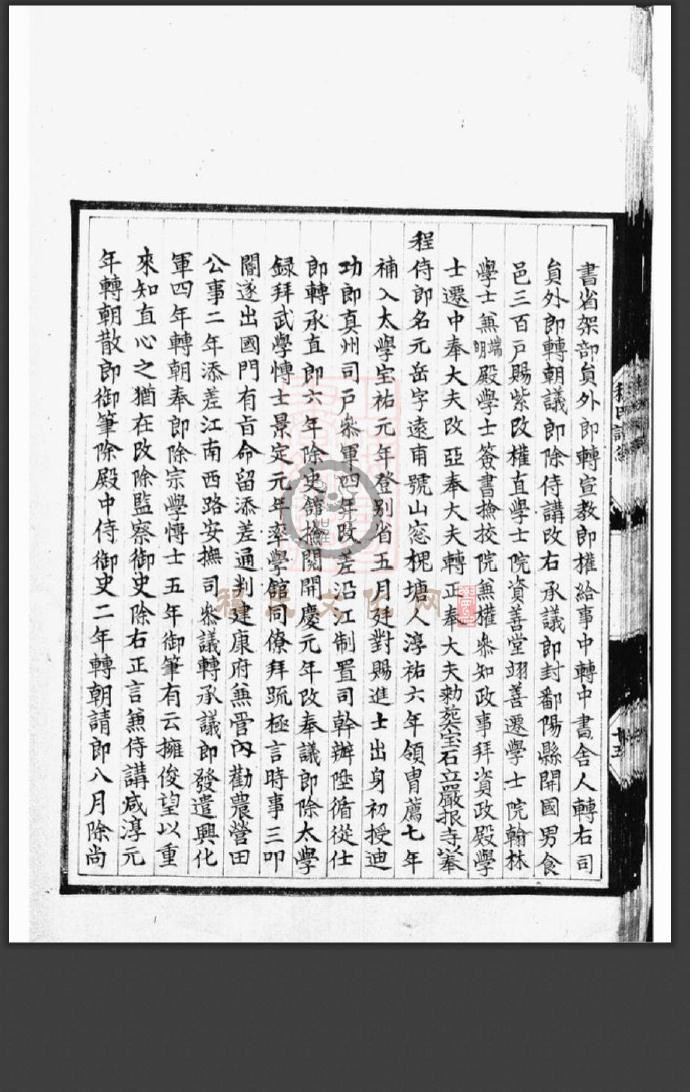 書省架部員外郎轉宣教郎權給事中轉中書舍人轉右司
員外郎轉朝議郎除侍講改右承議郎封鄱陽縣開國男食
邑三百戸賜紫改權直學士院資善堂翊善遷學士院翰林
學士兼端明殿學士簽書撿挍院兼權叅知政事拜資政殿學
士遷中奉大夫改亞奉大夫轉正奉大夫勑葬宝石立嚴报寺
程侍郎名元岳字遠甫號山窓槐塘人淳祐六年領胄薦七年
補入太學宝祐元年登别省五月廷對賜進士出身初授迪
功郎真州司戸叅軍四年改差沿江制置司幹辦陞循從仕
郎轉承直郎六年除史館撿閱開慶元年改奉議郎除太學
録拜武學愽士景定元年率學館同僚拜䟽極言時事三叩
閽遂出國門有旨命留添差通判建康府兼管內勸農營田
公事二年添差江南西路安撫司叅議轉承議郎發遣興化
軍四年轉朝奉郎除宗學愽士五年御筆有云擁俊望以重
來知直心之猶在改除監察御史除右正言兼侍講咸淳元
年轉朝散郎御筆除殿中侍御史二年轉朝請郎八月除尚
程氏文化网
十五